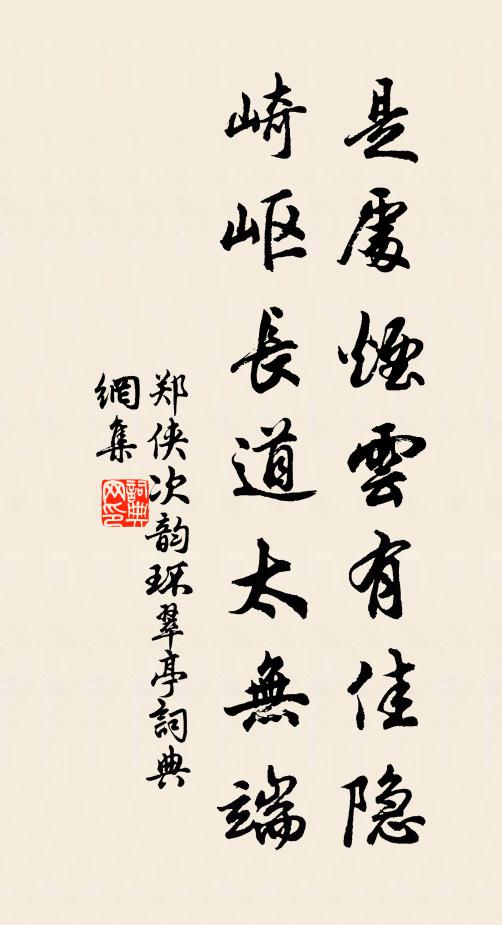 是處煙雲有佳隐
崎岖長道太無端
郑侠次韵环翠亭詞典
網集
詞典
网印